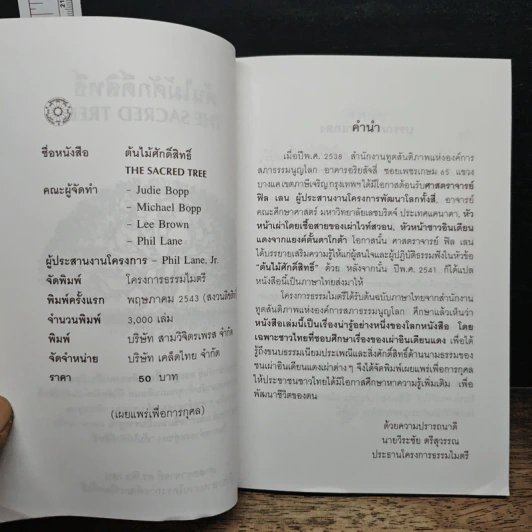 ชื่อหนังสือ ต้นไม้ศักดิ์สิทธิ์
THE SACRED TREE
คณะผู้จัดทำ - Judie Bopp
- Michael Bopp
- Lee Brown
- Phil Lane
ผู้ประสานงานโครงการ - Phil Lane, Jr.
จัดพิมพ์ โครงการธรรมไมตรี
พิมพ์ครั้งแรก พฤษภาคม 2543 (สงวนลิขสิทธิ์)
จำนวนพิมพ์ 3,000 เล่ม
พิมพ์ บริษัท สามวิจิตรเพรส จำกัด
จัดจำหน่าย บริษัท เคล็ดไทย จำกัด
ราคา 50 บาท
(เผยแพร่เพื่อการกุศล)
คำนำ
เมื่อปีพ.ศ. 2538 สำนักงานทูตสันติภาพแห่งองค์การ
สภาธรรมนูญโลก อาคารอริยสัจสี่ ซอยเพชรเกษม 65 แขวง
บางแค เขตภาษีเจริญ กรุงเทพฯ ได้มีโอกาสต้อนรับศาสตราจารย์
ฟิล เลน ผู้ประสานงานโครงการพัฒนาโลกทั้งสี่, อาจารย์
คณะศึกษาศาสตร์ มหาวิทยาลัยเลธบริดจ์ ประเทศแคนาดา, หัว
หน้าเผ่าโดยเชื้อสายของเผ่าไวท์สวอน, หัวหน้าชาวอินเดียน
แดงจากแยงค์ตันดาโกต้า โอกาสนั้น ศาสตราจารย์ ฟิล เลน
ได้บรรยายเสริมความรู้ให้แก่ผู้สนใจและผู้ปฏิบัติธรรมฟังในหัวข้อ
"ต้นไม้ศักดิ์สิทธิ์" ด้วย หลังจากนั้น ปีพ.ศ. 2541 ก็ได้แปล
หนังสือนี้เป็นภาษาไทยส่งมาให้
โครงการธรรมไมตรีได้รับต้นฉบับภาษาไทยจากสำนักงาน
ทูตสันติภาพแห่งองค์การสภาธรรมนูญโลก ศึกษาแล้วเห็นว่า
หนังสือเล่มนี้เป็นเรื่องน่ารู้อย่างหนึ่งของโลกหนังสือ โดย
เฉพาะชาวไทยที่ชอบศึกษาเรื่องของเผ่าอินเดียนแดง เพื่อได้
รู้ถึงขนบธรรมเนียมประเพณีและสิ่งศักดิ์สิทธิ์ด้านนามธรรมของ
ชนเผ่าอินเดียนแดงเผ่าต่างๆ จึงได้จัดพิมพ์เผยแพร่เพื่อการกุศล
ให้ประชาชนชาวไทยได้มีโอกาสศึกษาหาความรู้เพิ่มเติม เพื่อ
พัฒนาชีวิตของตน
ด้วยความปรารถนาดี
นายวีระชัย ตรีสุวรรณ
ประธานโครงการธรรมไมตรี